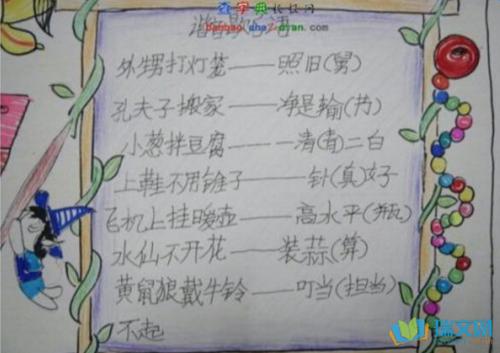 查字典板报网
banbao.chazidian.com
谐音歇后语
外甥打灯笼——照旧(舅)
孔夫子搬家——净是输(书)
小葱拌豆腐——一清(青)二白
上鞋不用锥子——针(真)好
飞机上挂暖壶——高水平(瓶)
水仙不开花——装蒜(算)
黄鼠狼戴牛铃——叮当(担当)
不起
瑞文网